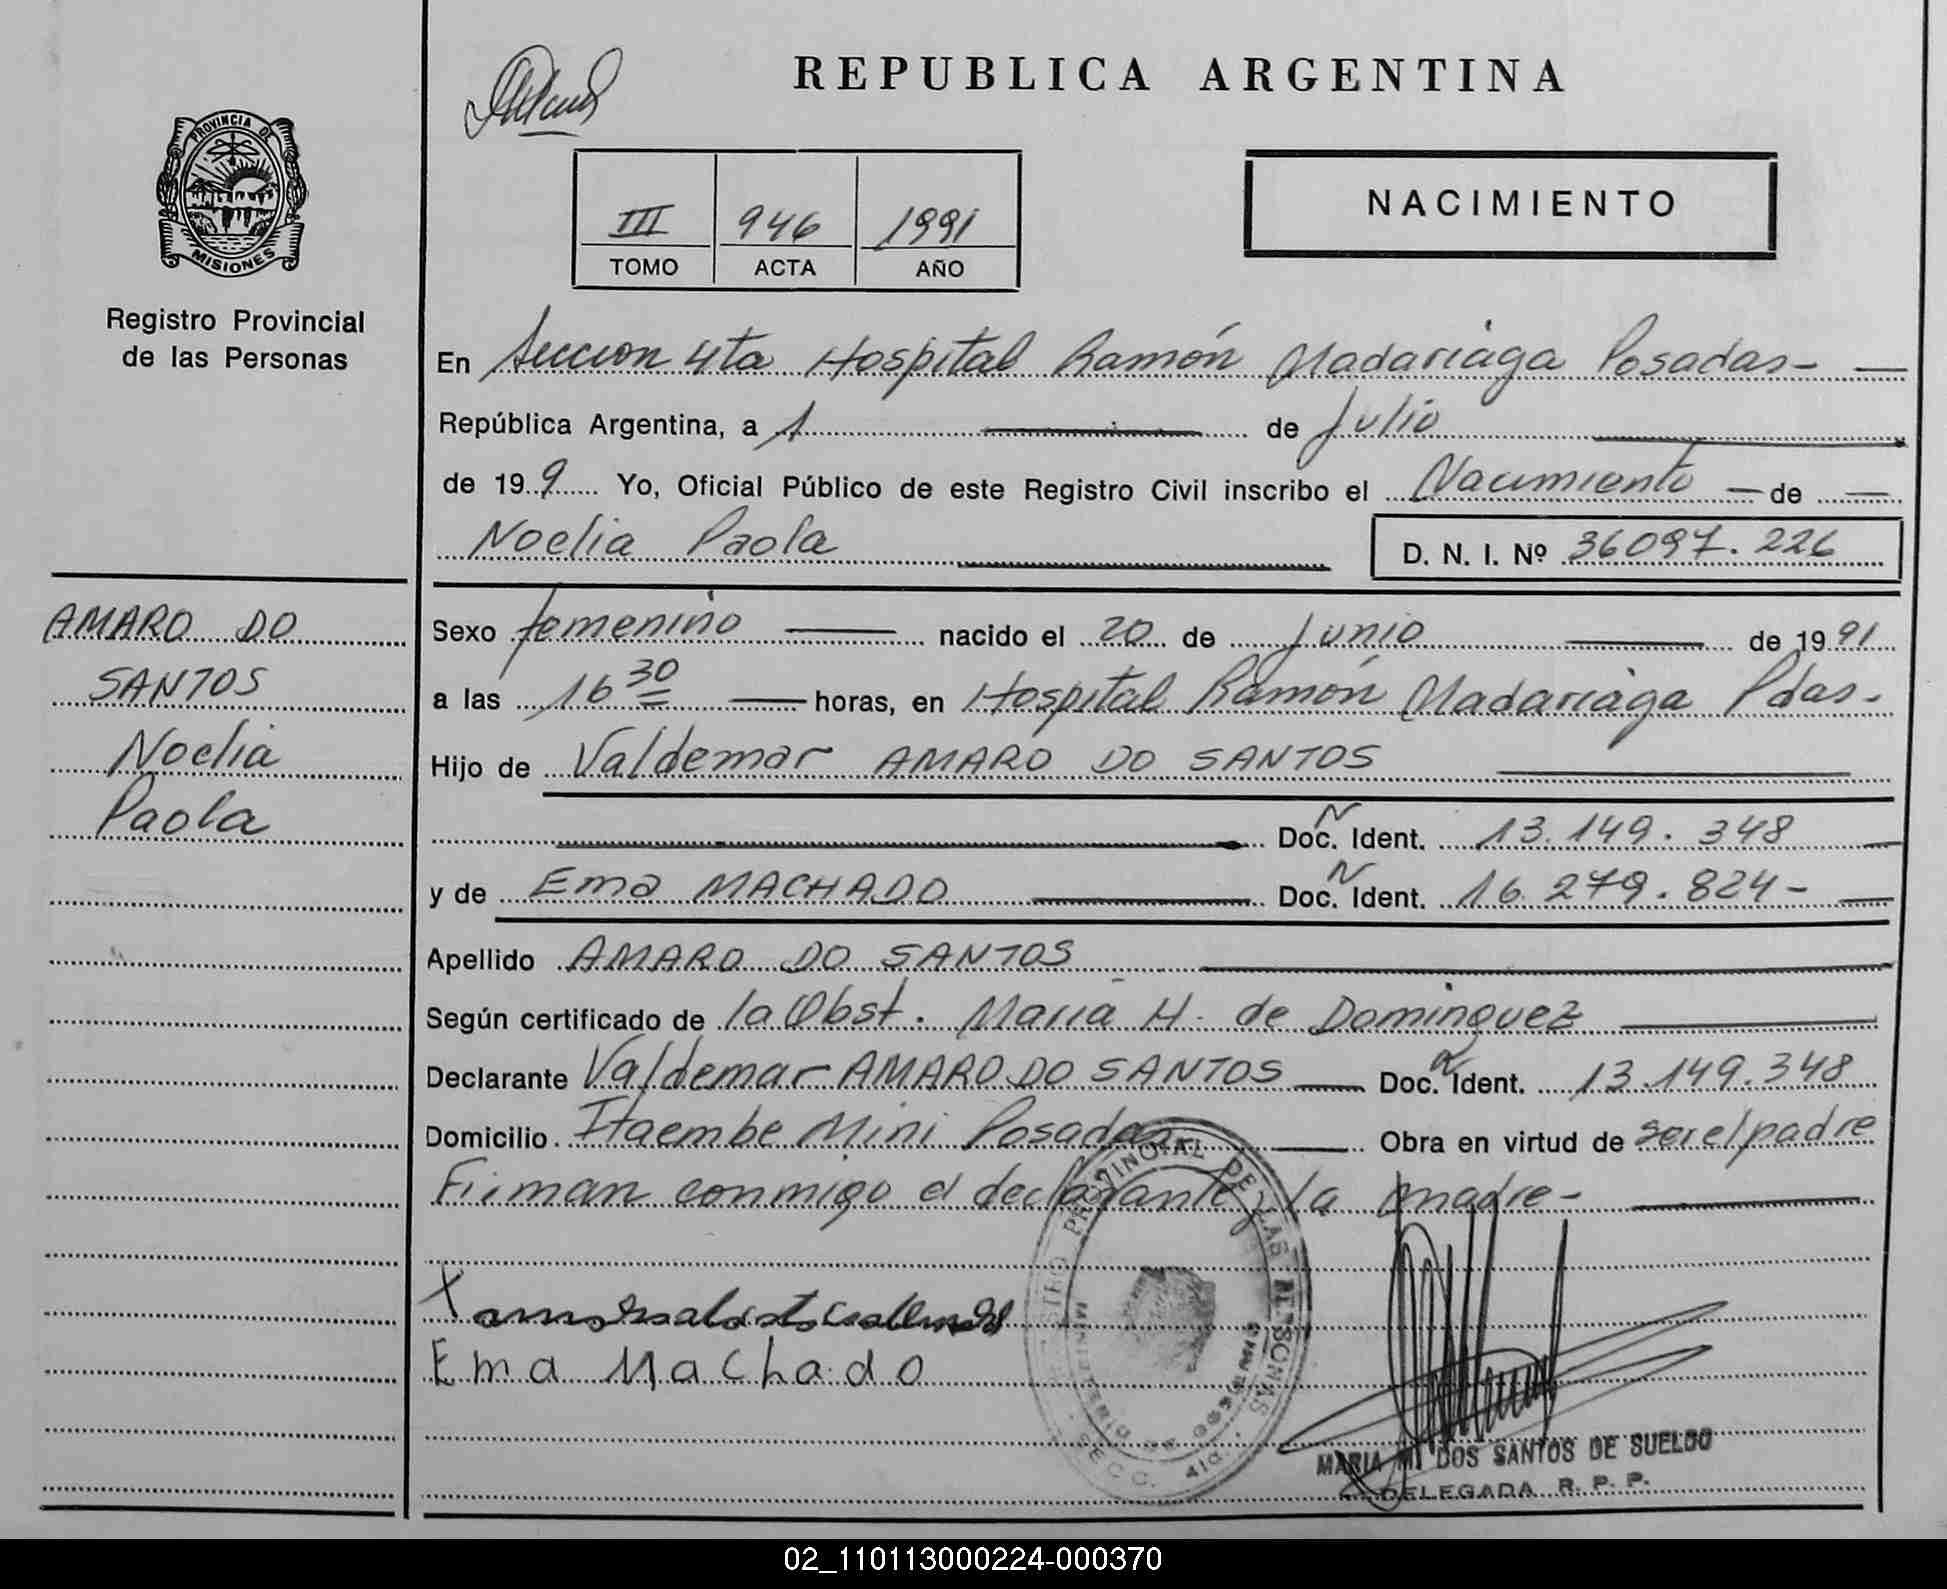 REPUBLICA ARGENTINA
PROVINCIA DE
MISIONES
Registro Provincial
de las Personas
III 946 1991
TOMO ACTA AÑO
NACIMIENTO
En Seccion 4ta Hospital Ramón Madariaga Posadas -
República Argentina, a 1 de Julio
de 199 Yo, Oficial Público de este Registro Civil inscribo el Nacimiento de
Noelia Paola D. N. I. Nº 36097.226
AMARO DO
SANTOS
Noelia
Paola
Sexo femenino nacido el 20 de Junio de 1991
a las 16 30 horas, en Hospital Ramón Madariaga Pdas-
Hijo de Valdemar AMARO DO SANTOS
Doc. N Ident. 13.149.348
y de Ema MACHADO Doc. N Ident. 16.279.824-
Apellido AMARO DO SANTOS
Según certificado de la Obst. Maria H. de Dominguez
Declarante Valdemar AMARO DO SANTOS Doc. N Ident. 13.149.348
Domicilio Itaembe Mini Posadas Obra en virtud de ser el padre
Firman conmigo el declarante y la madre-
X
Ema Machado
PROVINCIAL DE LAS PERSONAS
SECC. 4ta.
MARIA M. DOS SANTOS DE SUELDO
DELEGADA R. P. P.
02_110113000224-000370